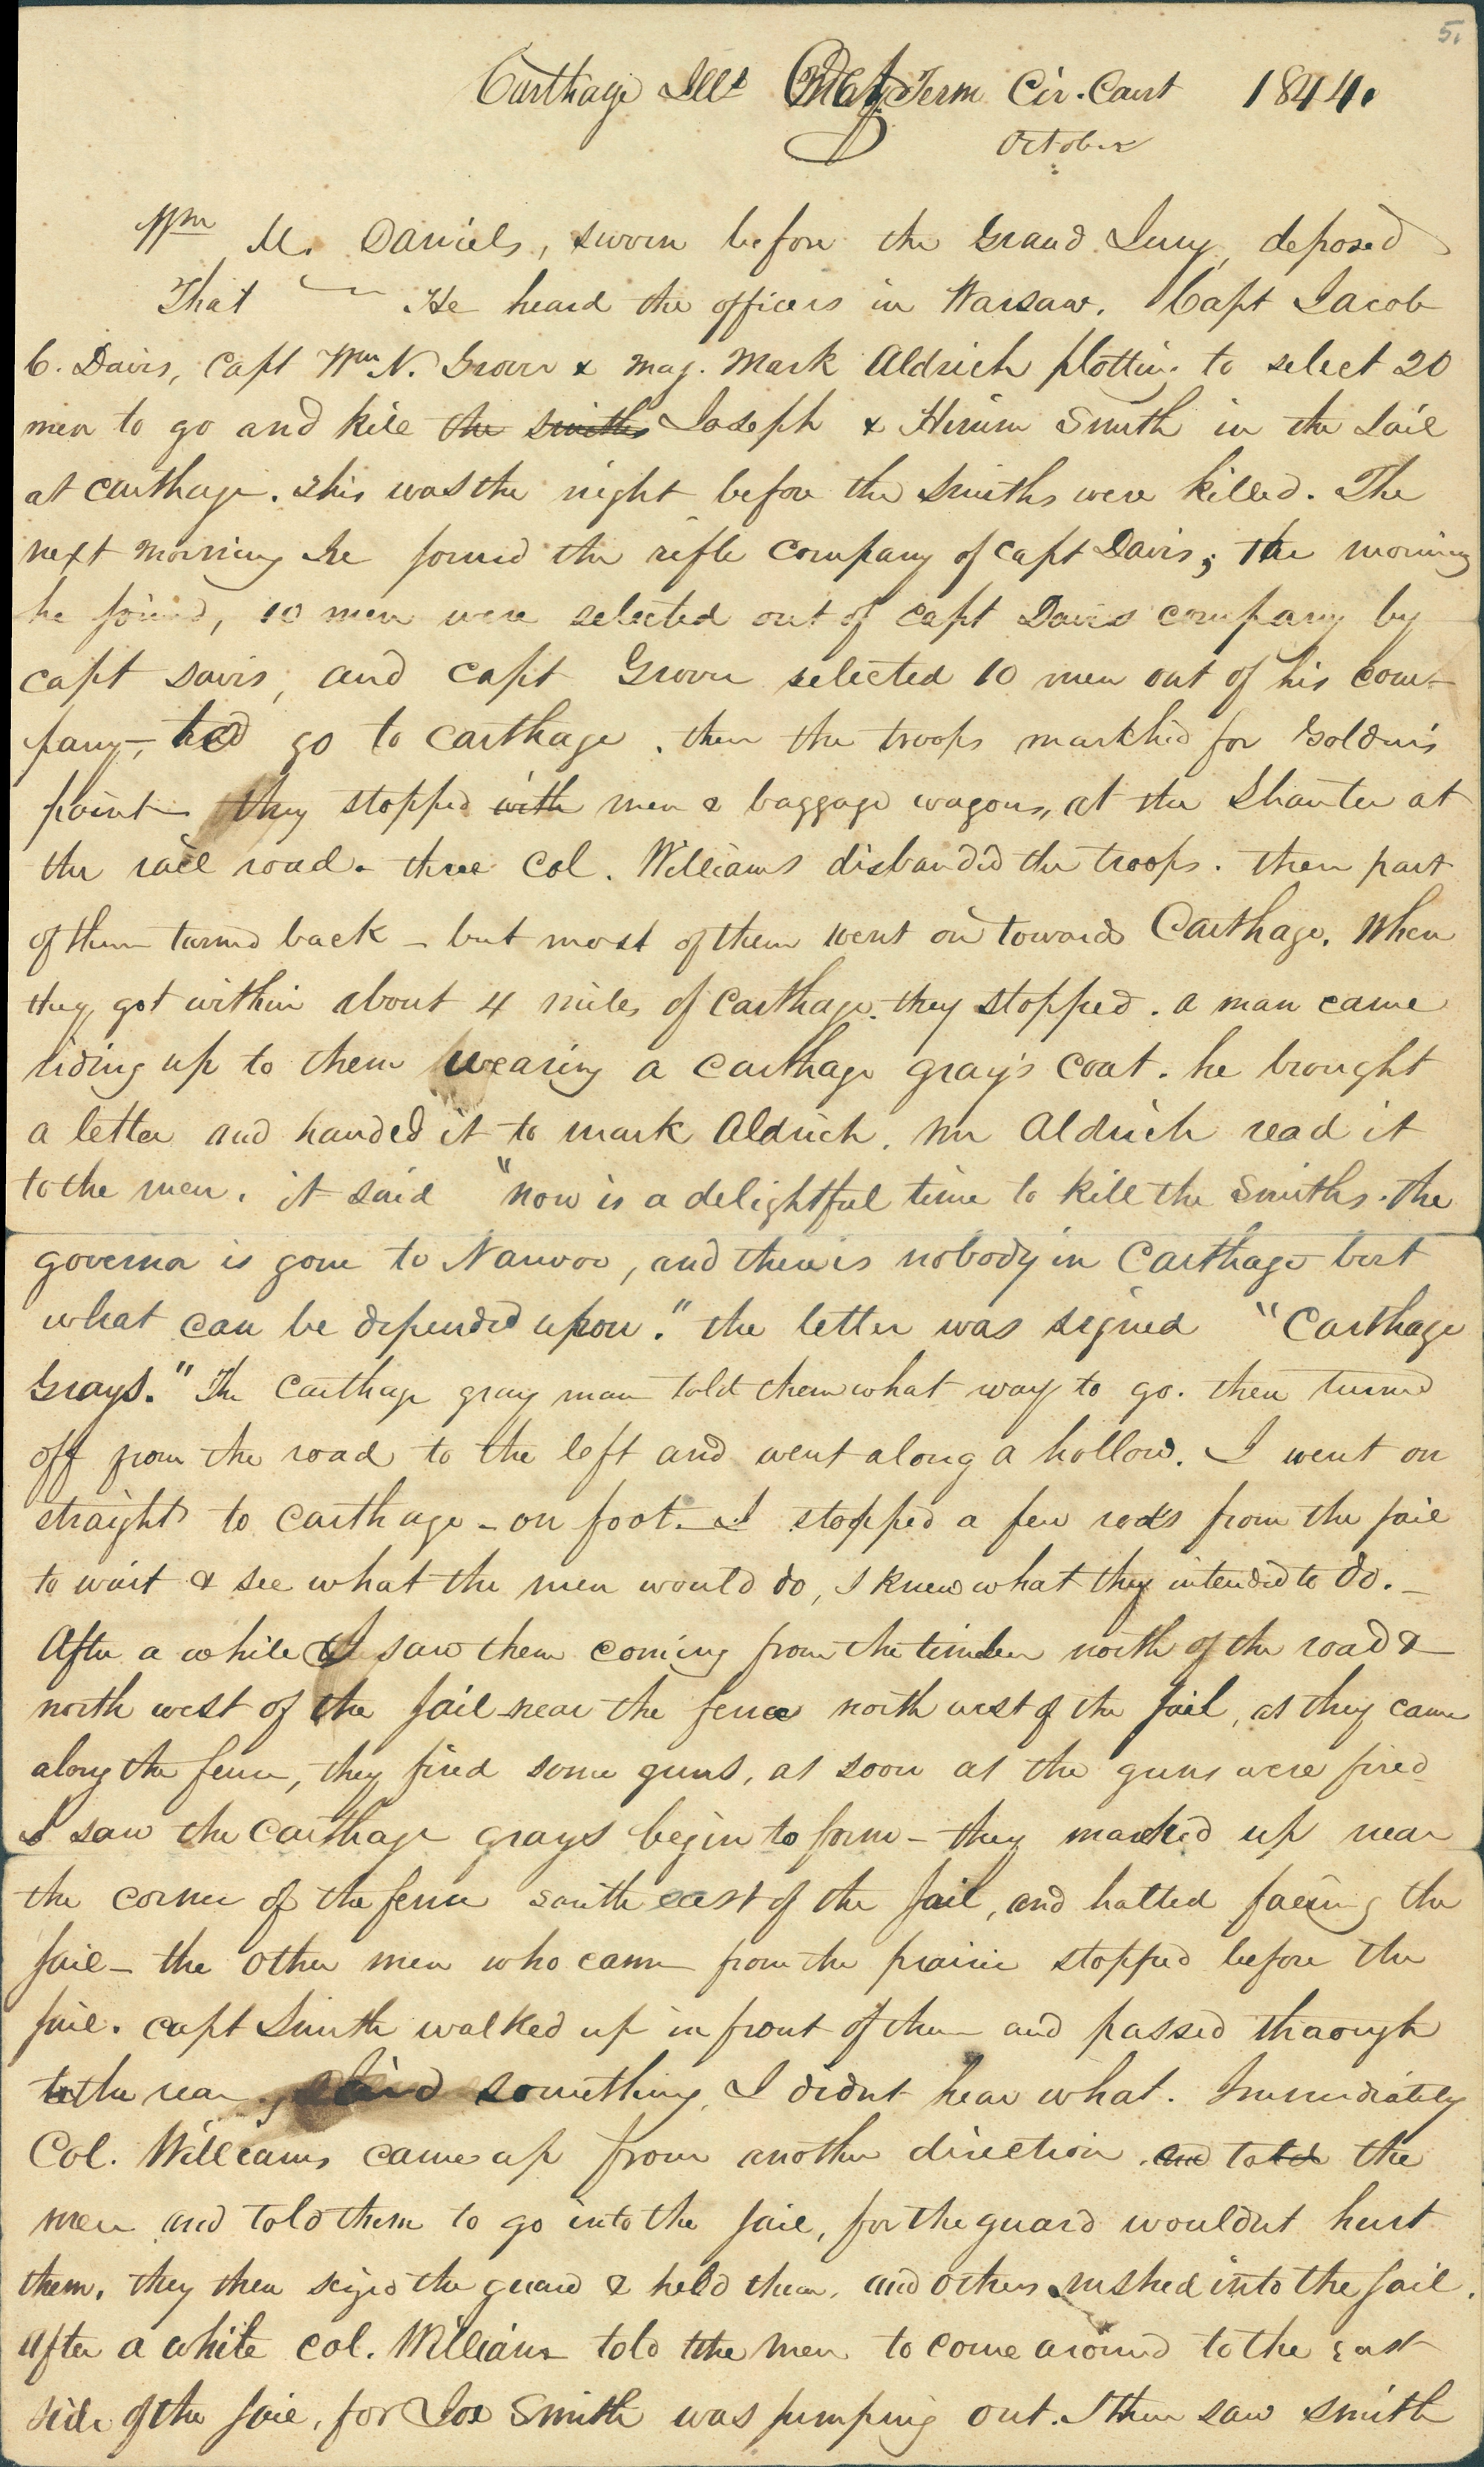 5.
Carthage Ills May Term Cir. Court 1844.
October
Wm M. Daniels, sworn before the Grand Jury, deposed
That He heard the officers in Warsaw. Capt Jacob
C. Davis, Capt Wm N. Grover & Maj. Mark Aldrich plotting to select 20
men to go and kill the smiths Joseph & Hirum Smith in the Jail
at Carthage. This was the night before the Smiths were killed. The
next morning he joined the rifle company of Capt Davis; the morning
he joined, 10 men were selected out of Capt Davis company by
Capt Davis, and Capt Grover selected 10 men out of his com-
pany, to go to Carthage. then the troops markhed for Golden's
point they stopped with men & baggage wagons, at the Shantee at
the rail road. there Col. Williams disbanded the troops. then part
of them turned back – but most of them went on towards Carthage. When
they got within about 4 miles of Carthage they stopped. a man came
riding up to them wearing a Carthage gray's coat. he brought
a letter and handed it to Mark Aldrich. Mr Aldrich read it
to the men. it said "now is a delightful time to kill the Smiths. the
governor is gone to Nauvoo, and there is nobody in Carthage but
what can be depended upon." the letter was signed "Carthage
Grays." The Carthage gray man told them what way to go. then turned
off from the road to the left and went along a hollow. I went on
straight to Carthage – on foot – I stopped a few rods from the jail
to wait & see what the men would do, I knew what they intended to do. –
After a while I saw them coming from the timber north of the road &
north west of the Jail near the fence north west of the Jail, as they came
along the fence, they fired some guns, as soon as the guns were fired
I saw the Carthage grays begin to form – they marched up near
the corner of the fence south east of the Jail, and halted facing the
Jail – the other men who came from the prairie stopped before the
Jail. Capt Smith walked up in front of them and passed through
to the rear, said something, I didnt hear what. Immediately
Col. Williams came up from another direction and told the
men and told them to go into the Jail, for the guard wouldnt hurt
them. they then seized the guard & held them. and others rushed into the Jail.
After a while Col. Williams told the men to come around to the east
side of the Jail, for Joe Smith was jumping out. I then saw Smith